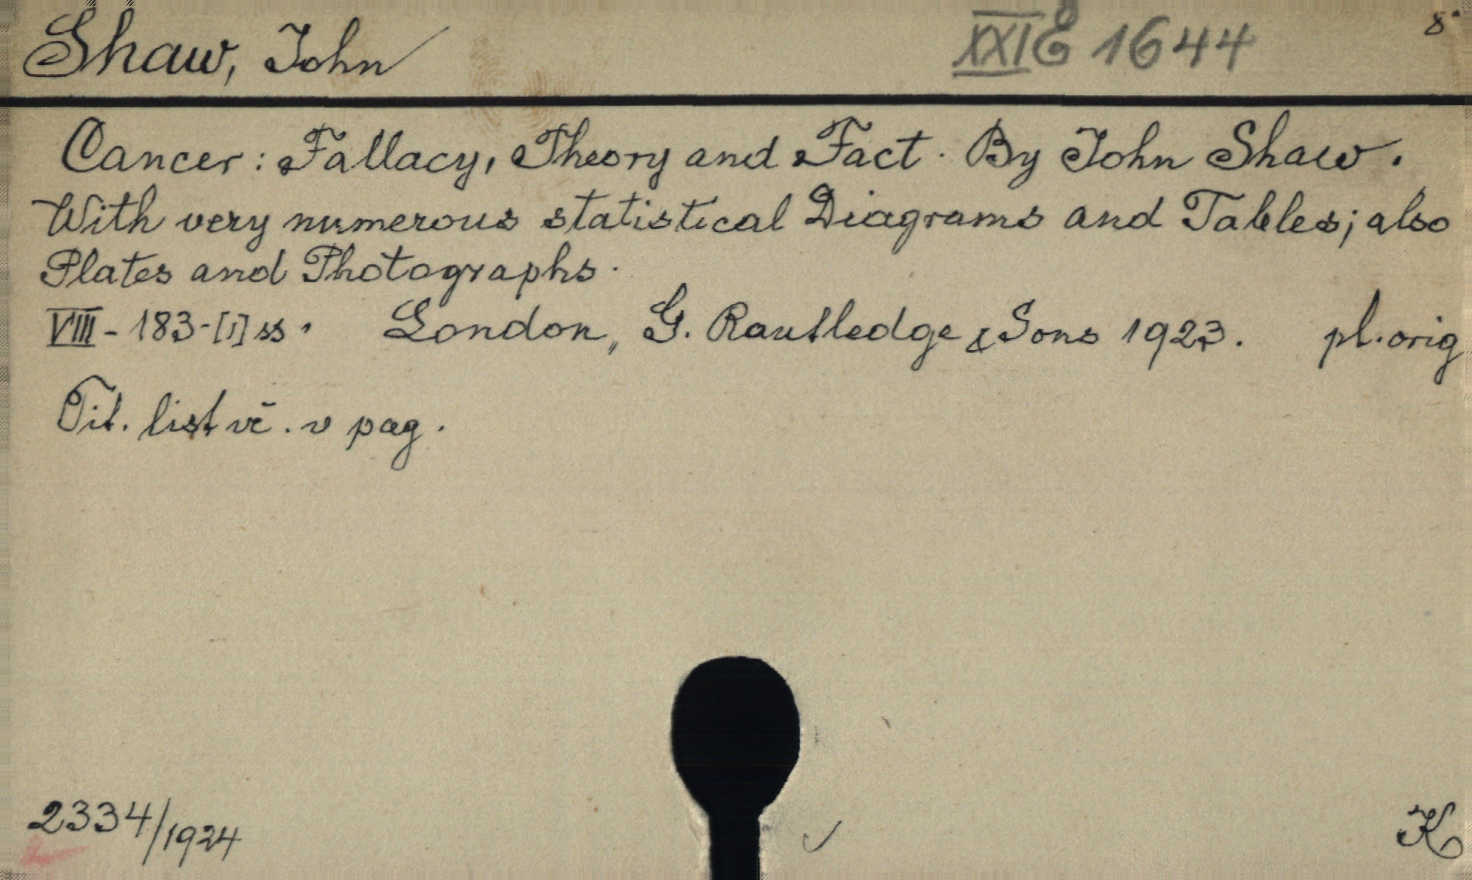 Shaw, John
XXI E 1644
8°
Cancer: Fallacy, Theory and Fact. By John Shaw.
With very numerous statistical Diagrams and Tables; also
Plates and Photographs.
VIII-183-[1] ss. London, G. Routledge & Sons 1923. pl. orig
Tit. list vč. v pag.
2334/1924
K